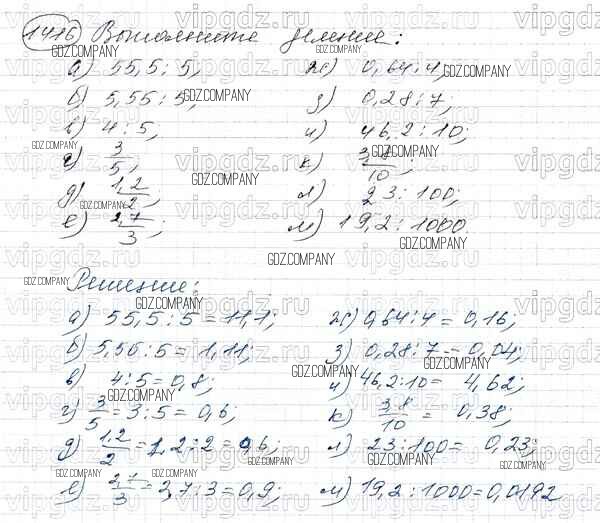 1416 Выполните деление:
а) 55,5 : 5; ж) 0,64 : 4;
б) 5,55 : 5; з) 0,28 : 7;
в) 4 : 5; и) 46,2 : 10;
г) 3/5; к) 3,8/10;
д) 1,2/2; л) 23 : 100;
е) 2,7/3; м) 19,2 : 1000.
Решение:
а) 55,5 : 5 = 11,1; ж) 0,64 : 4 = 0,16;
б) 5,55 : 5 = 1,11; з) 0,28 : 7 = 0,04;
в) 4 : 5 = 0,8; и) 46,2 : 10 = 4,62;
г) 3/5 = 3 : 5 = 0,6; к) 3,8/10 = 0,38;
д) 1,2/2 = 1,2 : 2 = 0,6; л) 23 : 100 = 0,23;
е) 2,7/3 = 2,7 : 3 = 0,9; м) 19,2 : 1000 = 0,0192
vipgdz.ru
GDZ.COMPANY